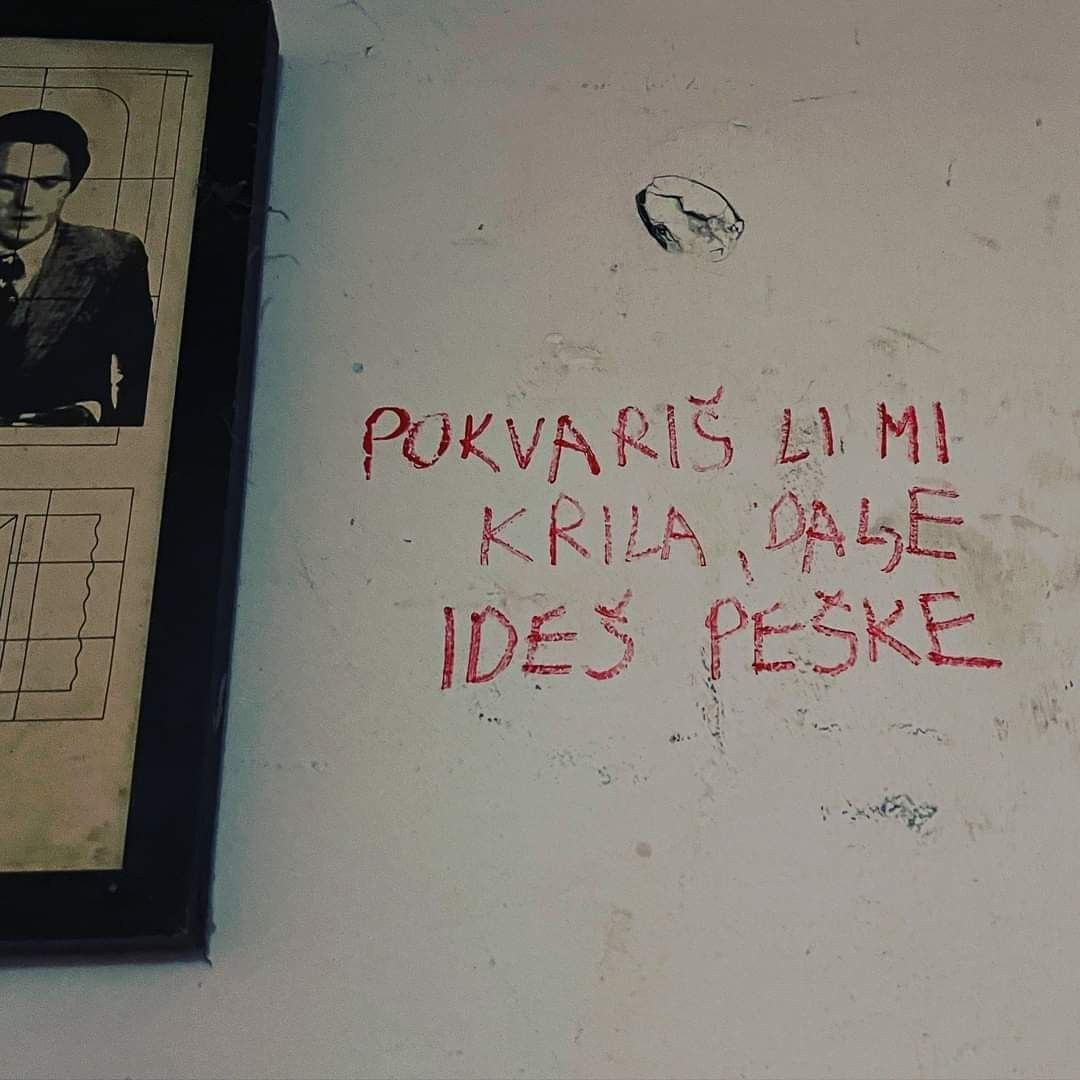 POKVARIŠ LI MI
KRILA, DALJE
IDEŠ PEŠKE